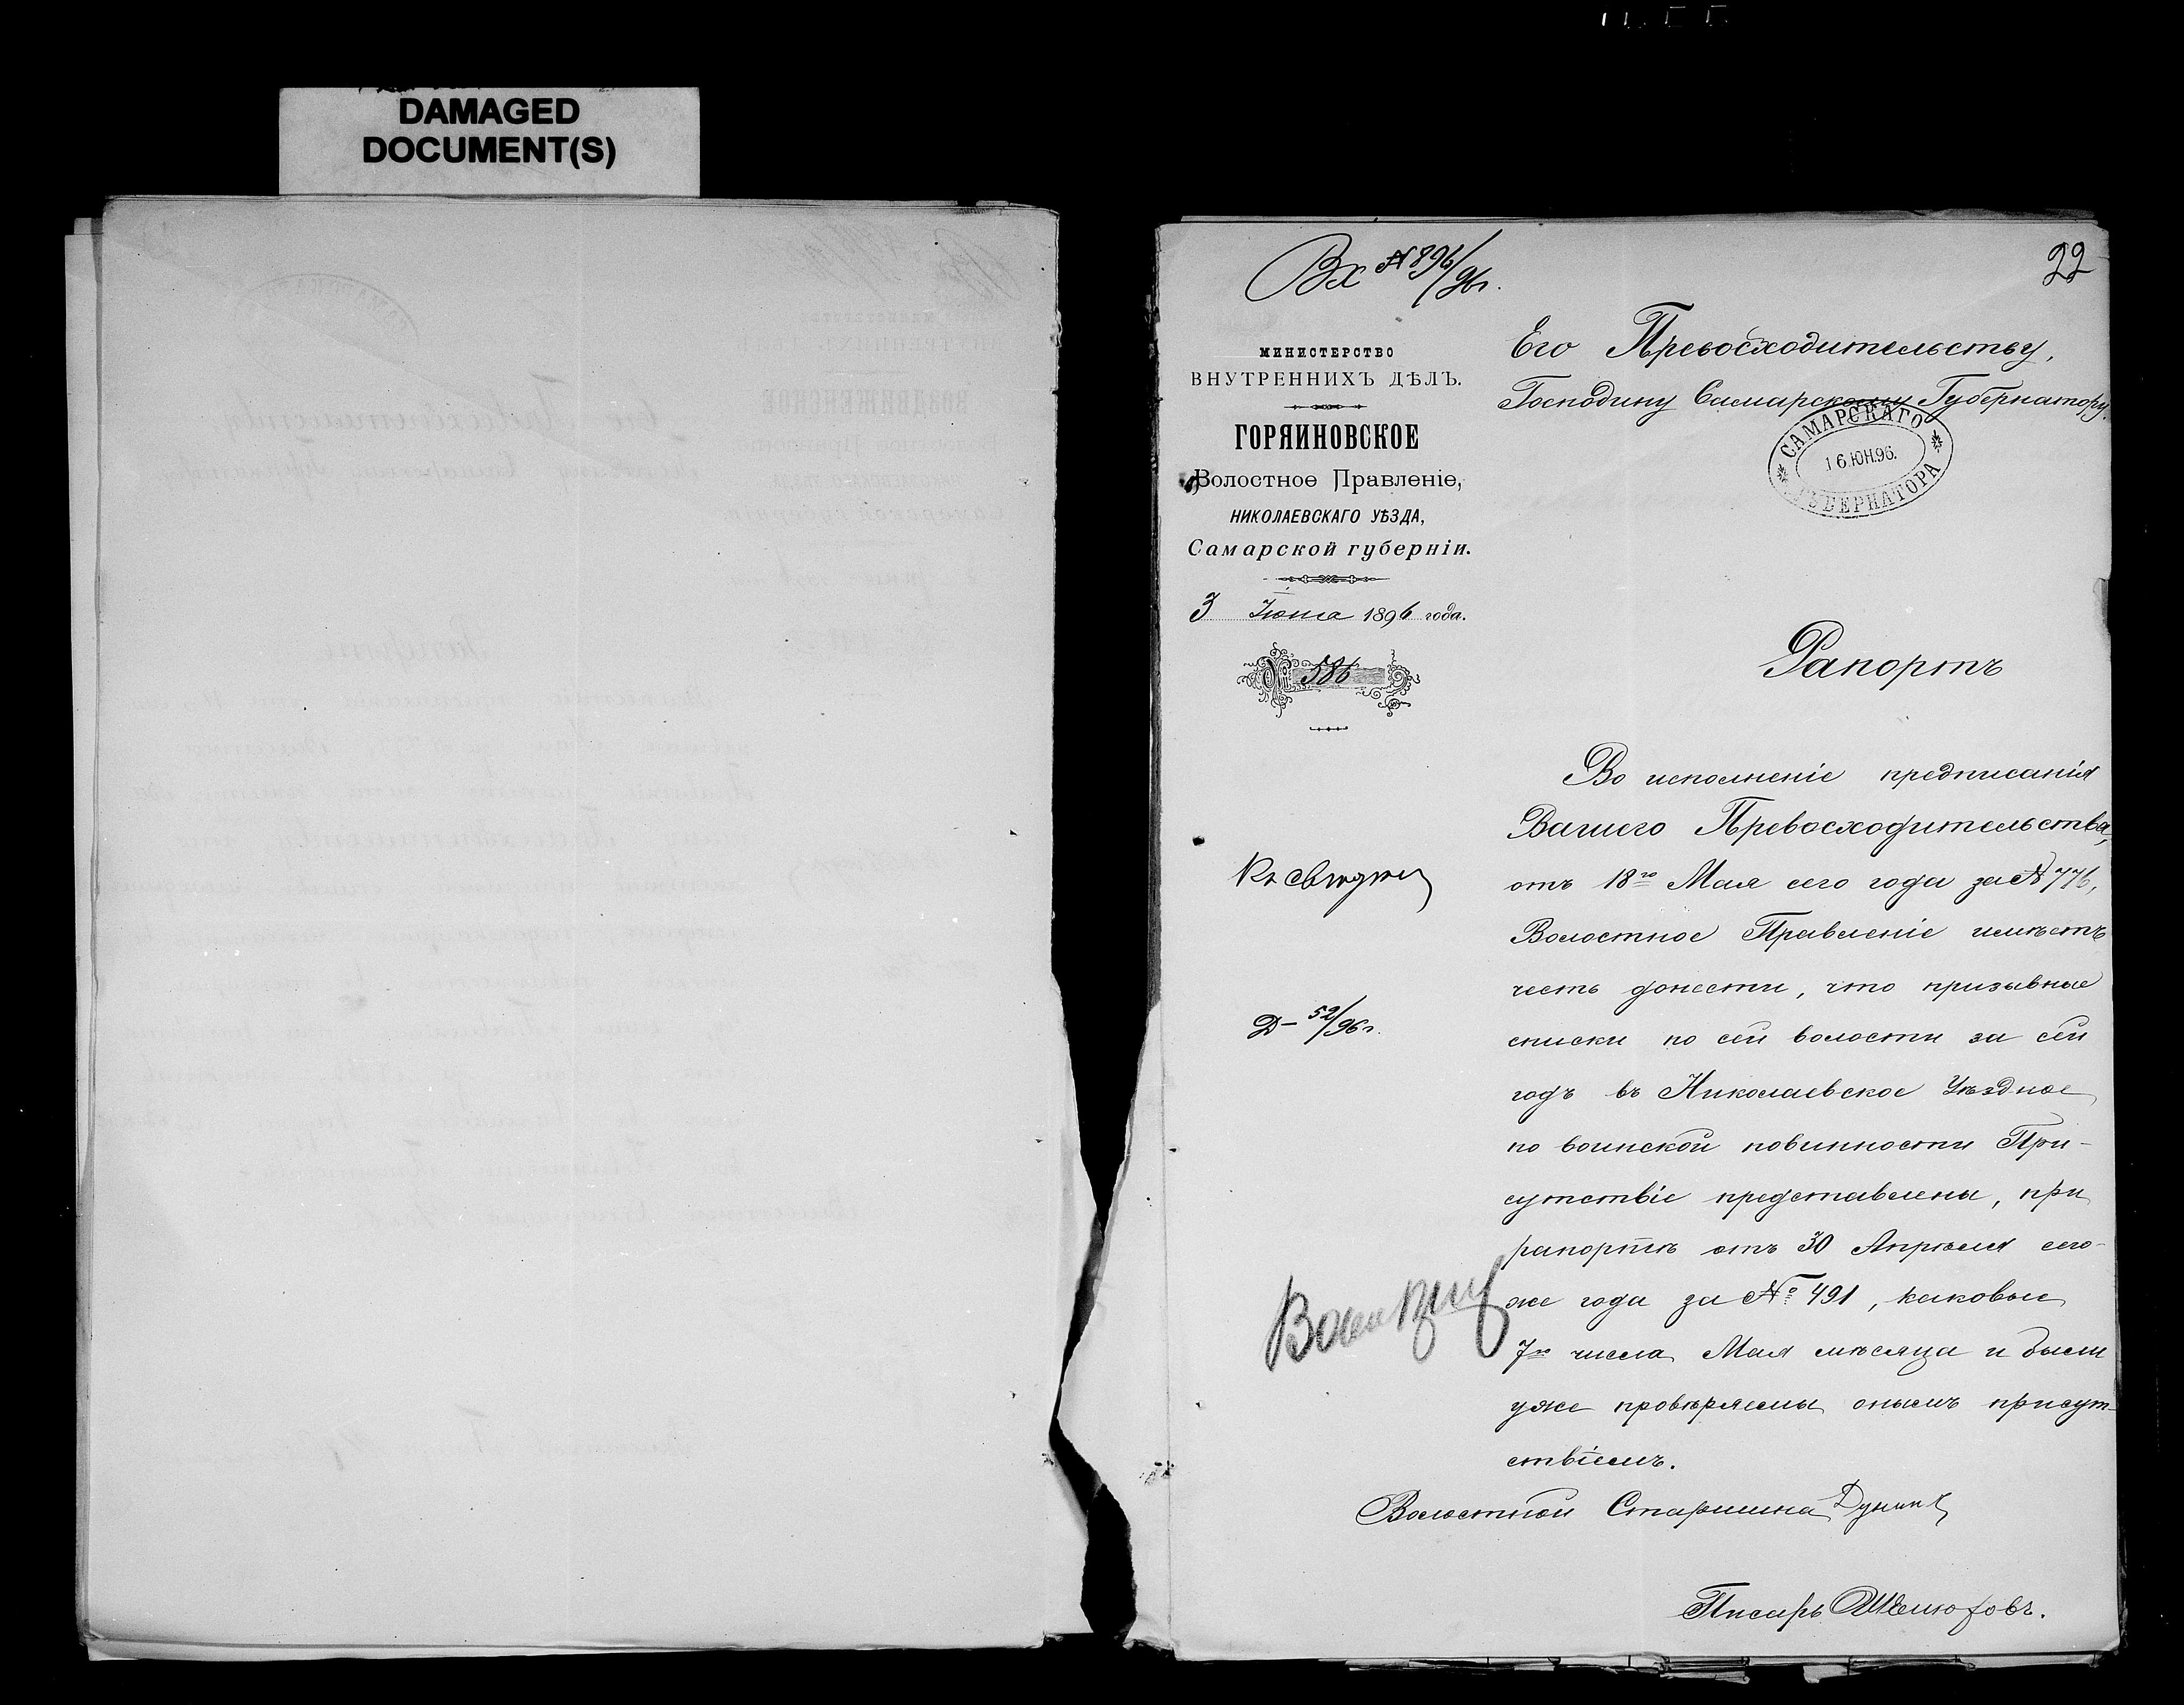 DAMAGED
DOCUMENT(S)
Вх № 896/96 г.
22
МИНИСТЕРСТВО
ВНУТРЕННИХЪ ДѢЛЪ.
ГОРЯИНОВСКОЕ
Волостное Правленіе,
НИКОЛАЕВСКАГО УѢЗДА,
Самарской губерніи.
3 Іюня 1896 года.
№ 586
Его Превосходительству,
Господину Самарскому Губернатору.
САМАРСКАГО
16.ЮН.96.
ГУБЕРНАТОРА
Рапортъ
Во исполненіе предписанія
Вашего Превосходительства,
отъ 18го Мая сего года за № 776,
Волостное Правленіе имѣетъ
честь донести, что призывные
списки по сей волости за сей
годъ въ Николаевское Уѣздное
по воинской повинности При-
сутствіе представлены, при
рапортѣ отъ 30 Апрѣля сего-
же года за № 491, каковые
7го числа Мая мѣсяца и были
уже провѣряемы онымъ присут-
ствіемъ.
Къ свѣдѣн
Д - 52/96 г.
Волостной Старшина
Писарь